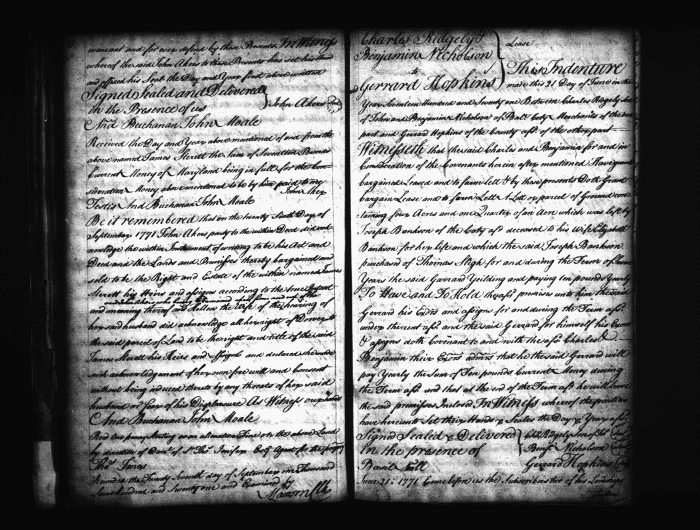 warrant and for ever defend by these Presents In Witness
whereof the said John Akers to these Presents has set his hand
and affixed his Seal the Day and Year first above written
Signed Sealed and Delivered
In the Presence of us
John Akers
And Buchanan John Moale
Received the Day and Year above mentioned of and from the
above named James Sterett the Sum of Seventeen Pounds
Current Money of Maryland being in full for the Con
sideration Money above mentioned to be by him paid to my
Testes And Buchanan John Moale
Be it remembered that on the twenty Sixth Day of
September 1771 John Akers party to the within Deed did ack
nowledge the within Instrument of writing to be his Act and
Deed and the Lands and Premises thereby bargained and
sold to be the Right and Estate of the within named James
Sterett his Heirs and assigns according to the true Intent
and meaning thereof and the Wife of
her said husband did acknowledge all her right of Dower
the said parcel of Land to be the right and title of the said
James Sterett his Heirs and Assigns and declared she made
said acknowledgement of her own free will and consent
without being induced thereto by any threats of her said
husband or fear of his Displeasure As Witness our hands
And Buchanan John Moale
by direction of Danl of St Thos Jenifer Esqr Agent for the
Thos Jones
Received the Twenty Seventh day of September one Thousand
Seven hundred and seventy one and Examined
Charles Ridgely &
Benjamin Nicholson
to
Gerrard Hopkins
Lease
This Indenture
made this 21 Day of June in the
Year Seventeen Hundred and Seventy one Between Charles Ridgely Son
of John and Benjamin Nicholson of Balt County Merchants of the one
part and Gerrard Hopkins of the County afd of the other part
Witnesseth that the said Charles and Benjamin for and in
Consideration of the Covenants herein after mentioned Have
bargained Leased and to farm Lett & by these presents Doth Grant
bargain Lease and to farm Lett A Lott or parcel of Ground con
taining five Acres and one Quarter of an Acre which was left by
Joseph Bankson of the Coty afd deceased to his Wife Elizabeth
Bankson for her life and which the said Joseph Bankson
purchased of Thomas Sligh for and during the Term of
Years the said Gerrard Yeilding and paying ten pounds Yearly
To Have and To Hold the afd premises unto him the said
Gerrard his Exors and assigns for and during the Term afd
under the rent afd and the said Gerrard for himself his Exors
& assigns doth Covenant to and with the afd Charles &
Benjamin their Exors admrs that he the said Gerrard will
pay Yearly the Sum of Ten pounds Current Money during
the Term afd and that at the end of the Term afd he will leave
the said premises Inclosed In Witness whereof the parties
have hereunto Set their Hands & Seales the Day & Year afd
Signed Sealed & Delivered
In the presence of
Chs Ridgely Son of Jno
Benj Nicholson
Gerrard Hopkins
June 21: 1771 Came before us the Subscribers two of his Lordships